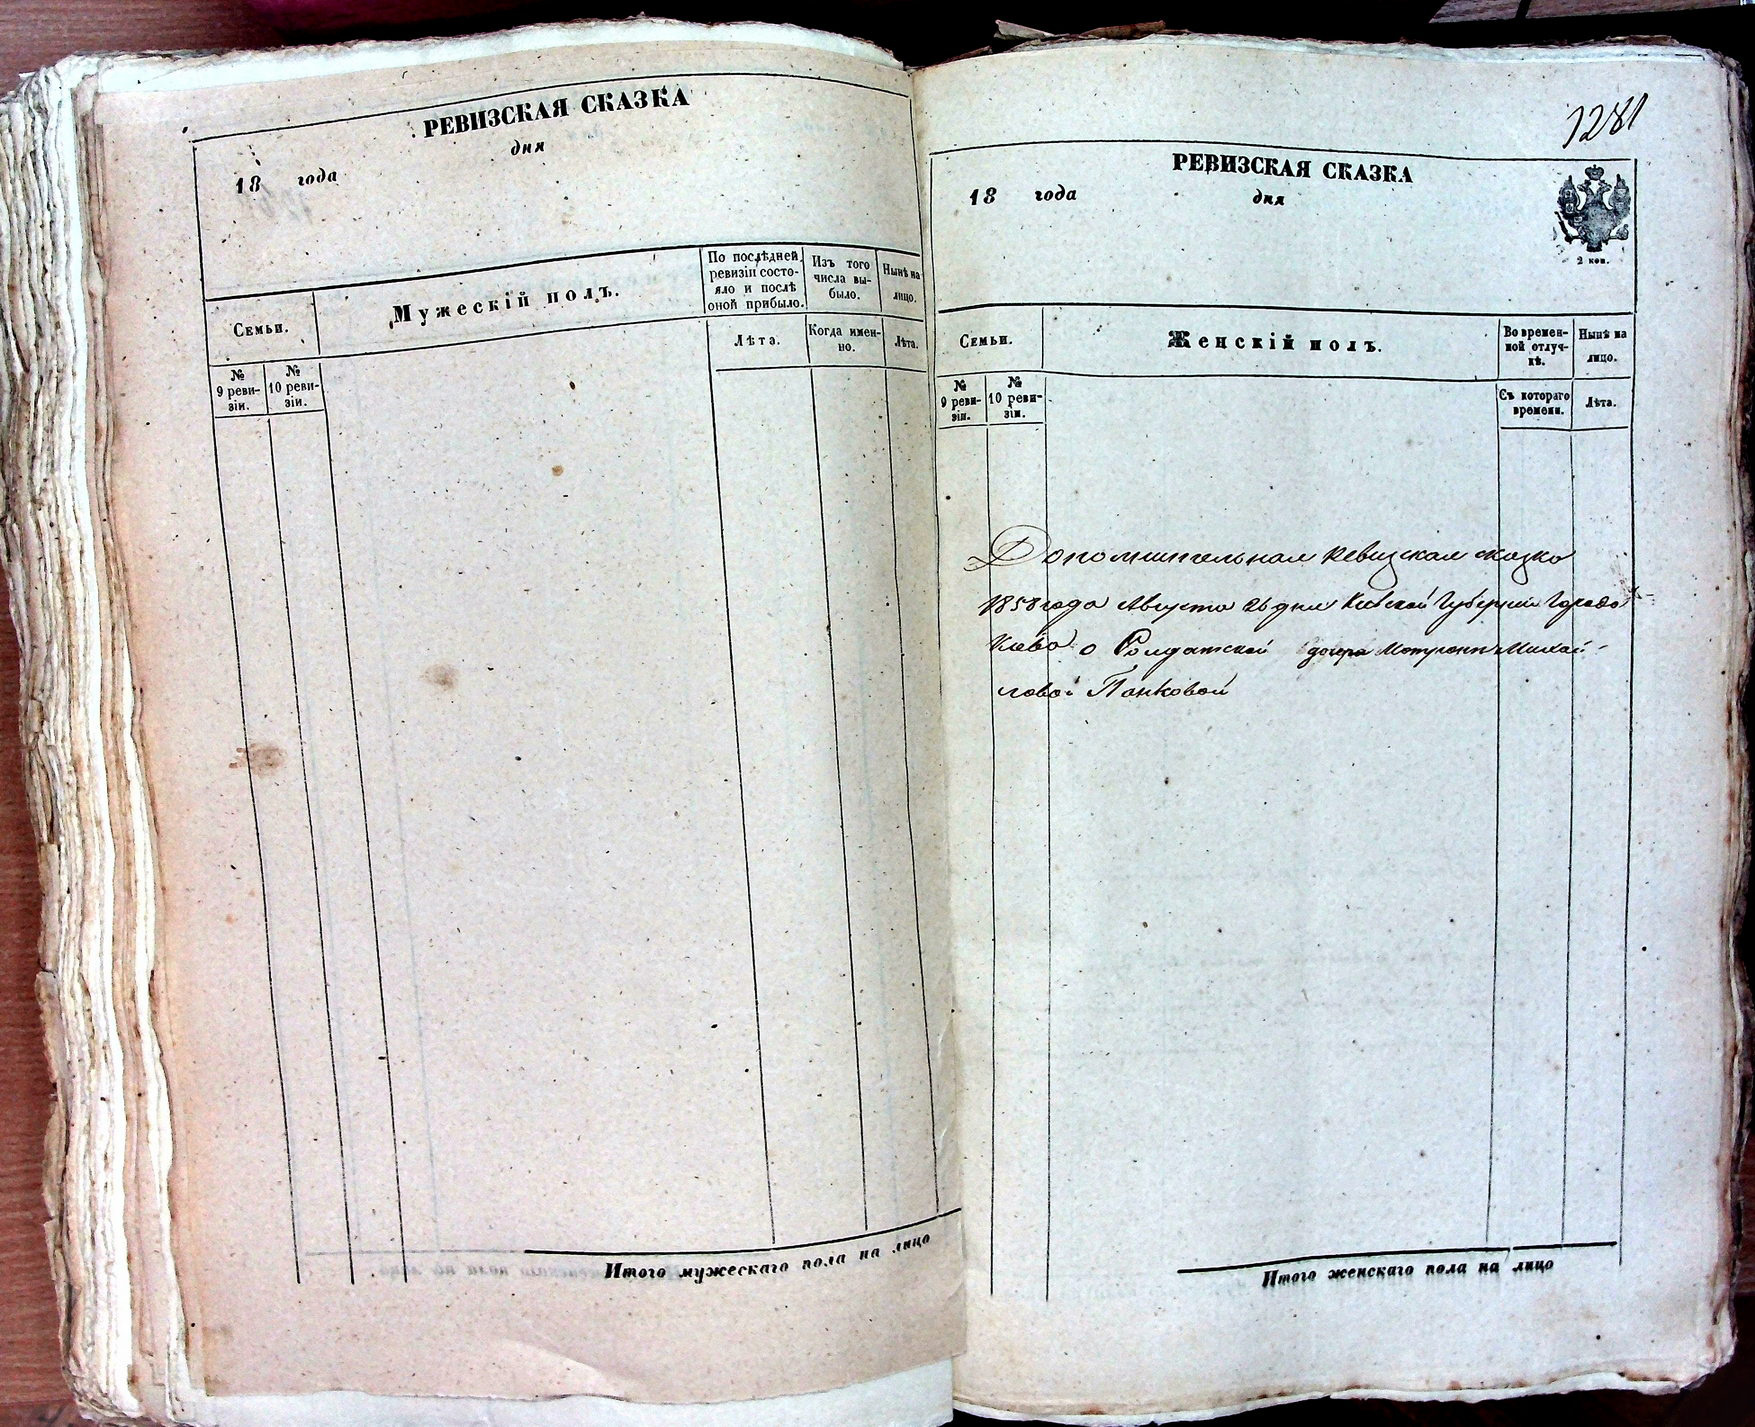 РЕВИЗСКАЯ СКАЗКА
дня
18 года
Семьи.
Мужескій полъ.
По послѣдней
ревизіи состо-
яло и послѣ
оной прибыло.
Изъ того
числа вы-
было.
Нынѣ на
лицо.
№
9 реви-
зіи.
№
10 реви-
зіи.
Лѣта.
Когда имен-
но.
Лѣта.
Итого мужескаго пола на лицо
1281
РЕВИЗСКАЯ СКАЗКА
18 года
дня
2 коп.
Семьи.
Женскій полъ.
Во времен-
ной отлуч-
кѣ.
Нынѣ на
лицо.
№
9 реви-
зіи.
№
10 реви-
зіи.
Съ котораго
времени.
Лѣта.
Дополнительная ревизская сказка
1858 года Августа 26 дня Кіевской Губерніи Города
Кіева о Солдатской дочере Мотроне Михай-
ловой Панковой
Итого женскаго пола на лицо